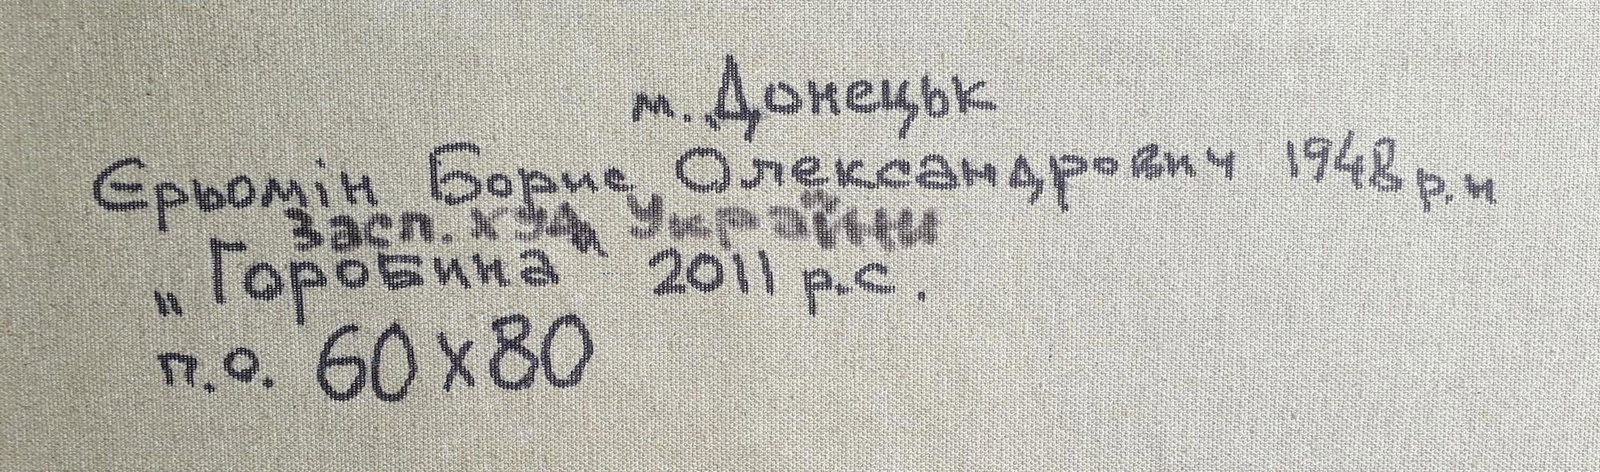 м. Донецьк
Єрьомін Борис Олександрович 1948 р.н
Засп. худ України
„Горобина" 2011 р.с.
п.о. 60х80